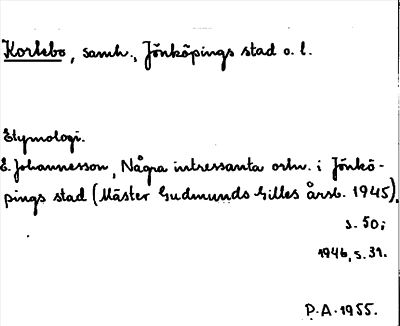 Korsebo, samh., Jönköpings stad o. l.
Etymologi.
E. Johannesson, Några intressanta ortn. i Jönkö-
pings stad (Mäster Gudmunds Gilles årsb. 1945),
s. 50;
1946, s. 31.
P.A. 1955.